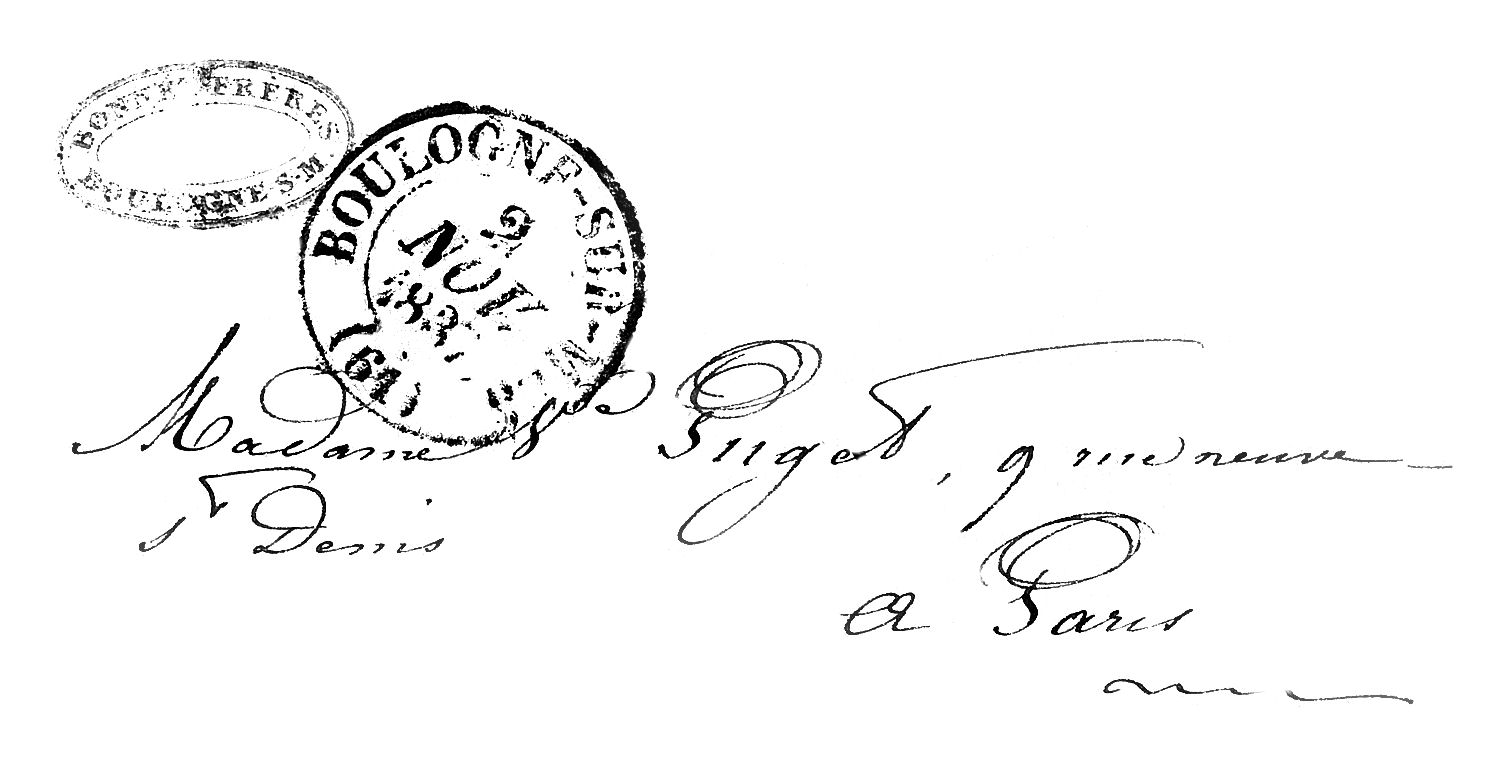 BONNET FRÈRES
BOULOGNE S-M.
BOULOGNE-SUR-MER
2
NOV.
(61)
Madame Vve Puget, 9 rue neuve
St Denis
A Paris